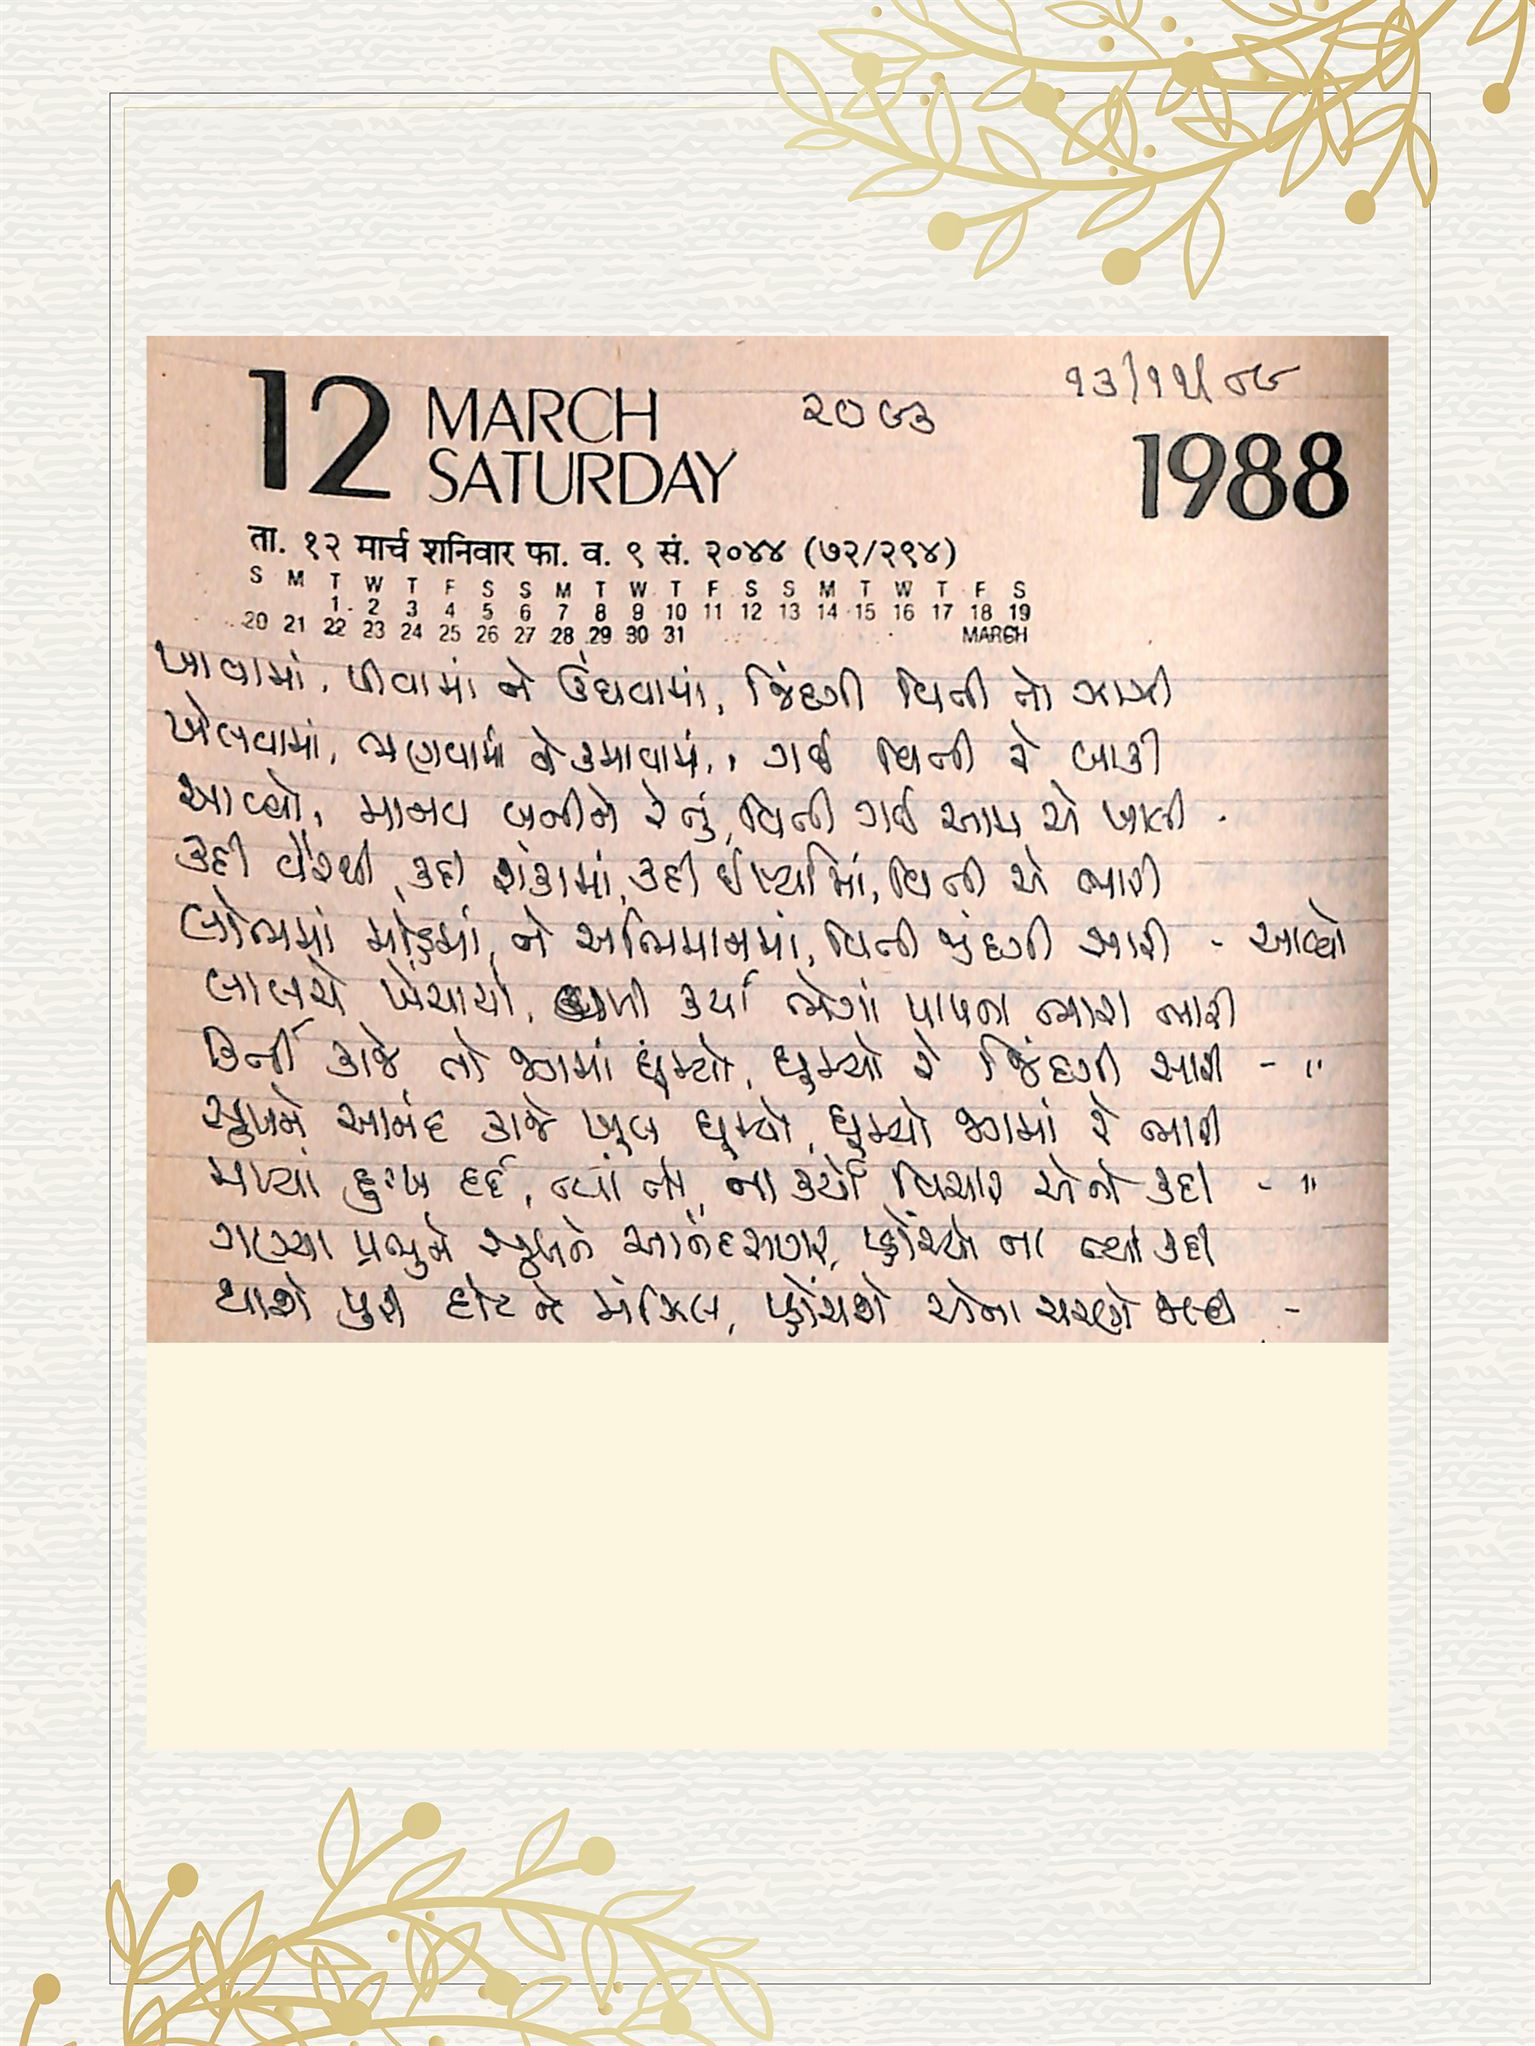 ૧૩/૧૧/૮૯
12 MARCH
SATURDAY
૨૦૭૩
1988
ता. १२ मार्च शनिवार फा. व. ९ सं. २०४४ (७२/२९४)
S M T W T F S S M T W T F S S M T W T F S
1 2 3 4 5 6 7 8 9 10 11 12 13 14 15 16 17 18 19
20 21 22 23 24 25 26 27 28 29 30 31 MARCH
ખાવામાં, પીવામાં ને ઊંઘવામાં, જિંદગી વિતી તો ઝાઝી
ખેલવામાં, ભણવામાં ને કમાવામાં, ગઈ વિતી રે બાકી
આવ્યો, માનવ બનીને રે તું, વિતી ગઈ આમ એ ખાલી -
કદી વૈરથી, કદી શંકામાં, કદી ઈર્ષ્યામાં, વિતી એ ભારી
લોભમાં મોહમાં, ને અભિમાનમાં, વિતી જીંદગી સારી - આવ્યો
લાલચે ખેંચાયો, કર્યા ભેગાં પાપના ભારા ભારી
કિર્તી કાજે તો જગમાં ઘુંમ્યો, ઘુમ્યો રે જિંદગી સારી - "
સુખને આનંદ કાજે ખુબ ઘુમ્યો, ઘુમ્યો જગમાં રે ભારી
મળ્યાં દુઃખ દર્દ, ત્યાં તો, ના કર્યો વિચાર એનો કદી - "
ગણ્યા પ્રભુને સુખને આનંદસાગર, પ્હોંચ્યો ના ત્યાં કદી
થાશે પુરી દોટ ને મંઝિલ, પ્હોંચશે એના ચરણે જલ્દી -